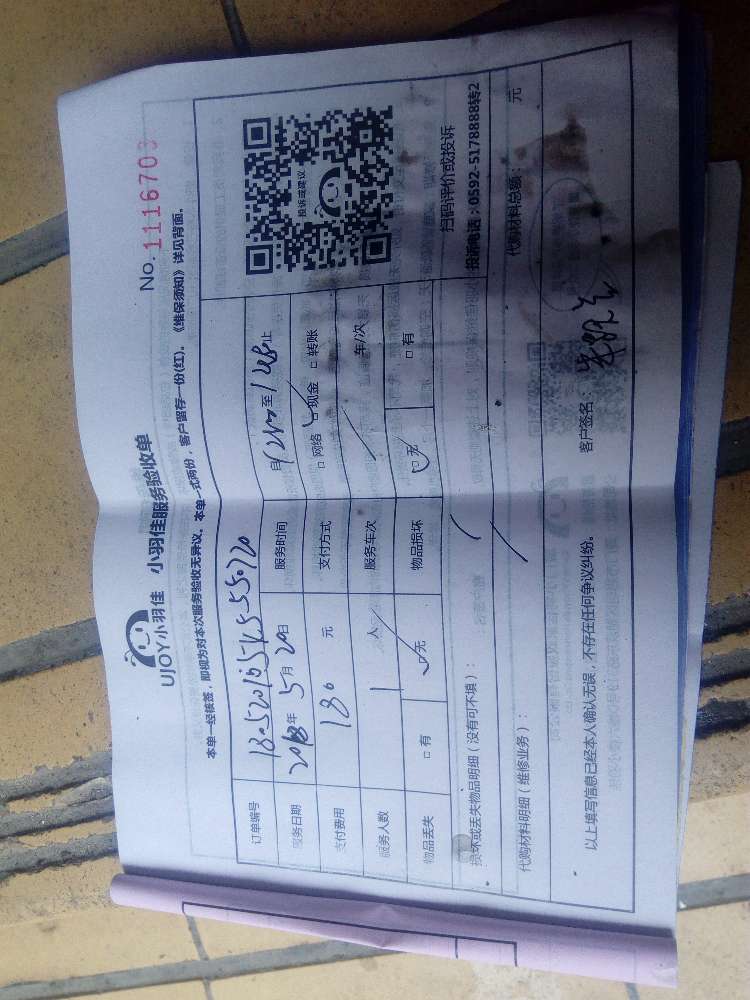 No. 1116703
UJOY小羽佳 小羽佳服务验收单
本单一经核签，即视为对本次服务验收无异议。本单一式两份，客户留存一份(红)。《维保须知》详见背面。
订单编号
服务日期 2018年5月20日 服务时间 自 至 止
支付费用 180 元 支付方式 □ 网络 □ 现金 □ 转账
服务人数 1 人 服务车次 车/次
物品丢失 □ 有 □ 无 物品损坏 □ 无 □ 有
投诉或建议
扫码评价或投诉
投诉电话：0592-5178888转2
损坏或丢失物品明细（没有可不填）：
代购材料明细（维修业务）： 代购材料总额： 元
以上填写信息已经本人确认无误，不存在任何争议纠纷。 客户签名：